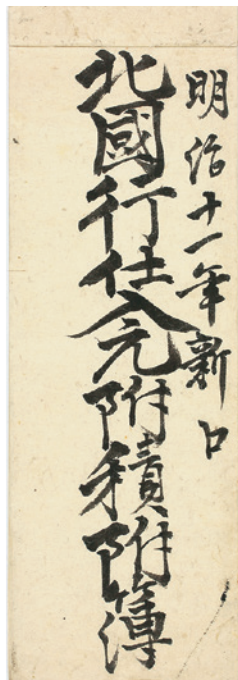 明治十一年新口
北國行仕入元附積附簿